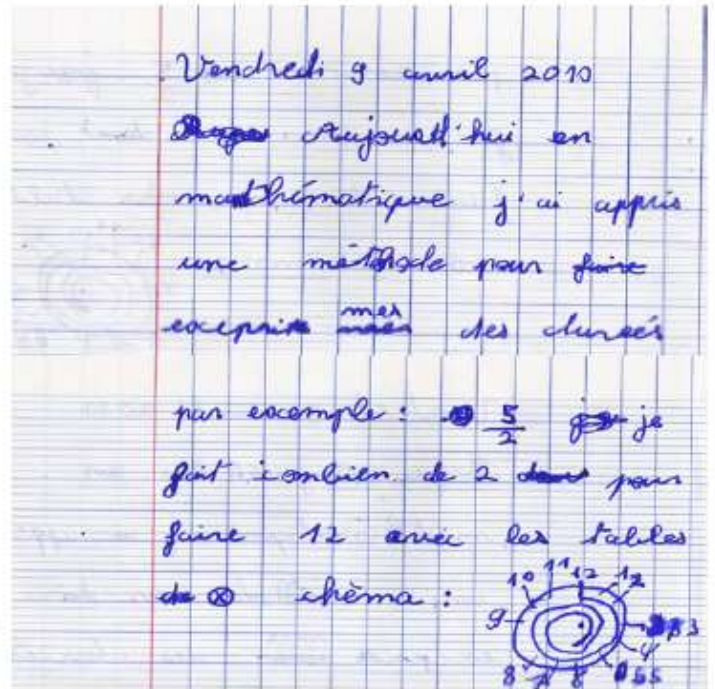 Vendredi 9 avril 2010
Aujourd'hui en
mathématique j'ai appris
une méthode pour faire
mes des durées
par exemple : 5/2 je
fait combien de 2 pour
faire 12 avec les tables
de ⊗ chèma :
10 11 12 1 2
9 3
4
8 7 6 5